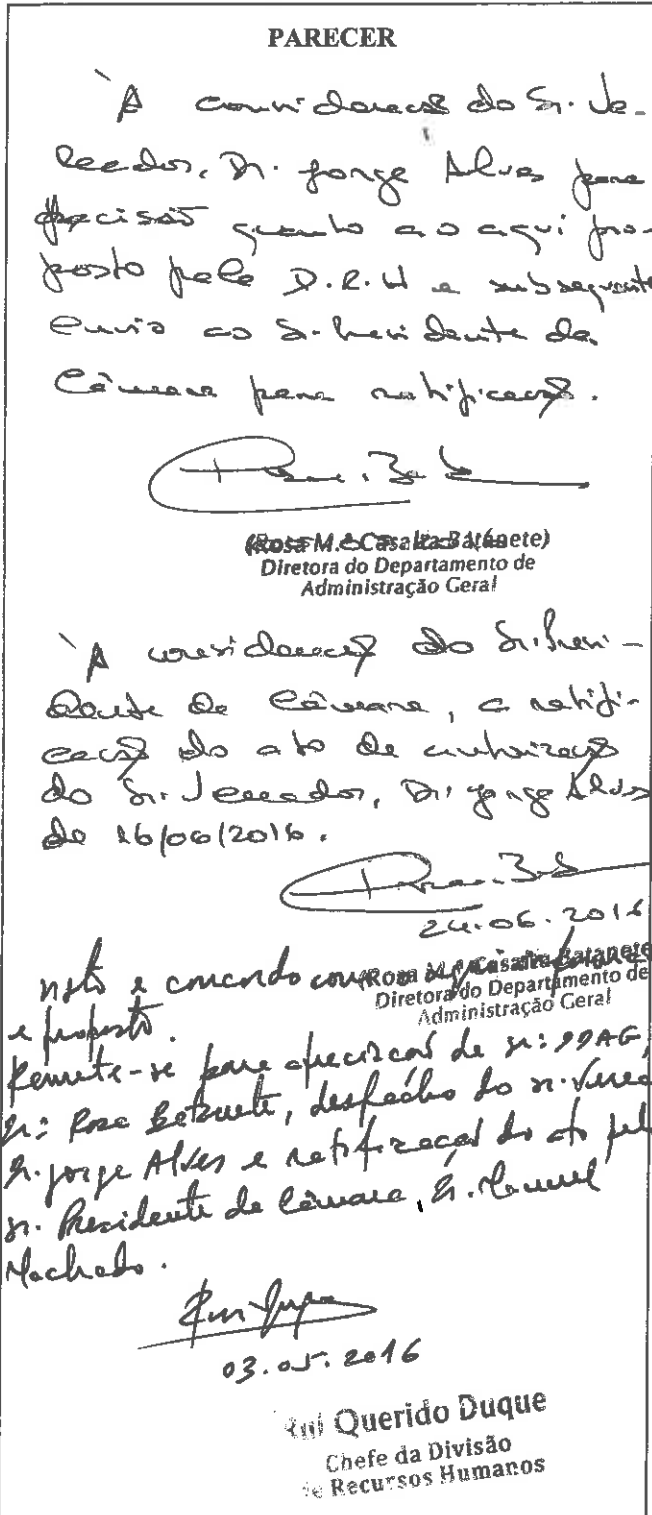 PARECER
À consideração do Sr. Ve-
reador, Dr. Jorge Alves para
decisão quanto ao aqui pro-
posto pela D.R.H e subsequente
envio ao Sr. Presidente da
Câmara para ratificação.
(Rosa M. Batanete)
Diretora do Departamento de
Administração Geral
À consideração do Sr. Presi-
dente da Câmara, a ratifi-
cação do ato de autorização
do Sr. Vereador, Dr. Jorge Alves
de 16/06/2016.
24.06.2016
Diretora do Departamento de
Administração Geral
Visto e concordo com o
e proposto.
Remete-se para apreciação da Srª DDAG,
Drª Rosa Batanete, despacho do Sr. Veread
Dr. Jorge Alves e ratificação do ato pelo
Sr. Presidente da Câmara, Dr. Manuel
Machado.
03.05.2016
Rui Querido Duque
Chefe da Divisão
de Recursos Humanos